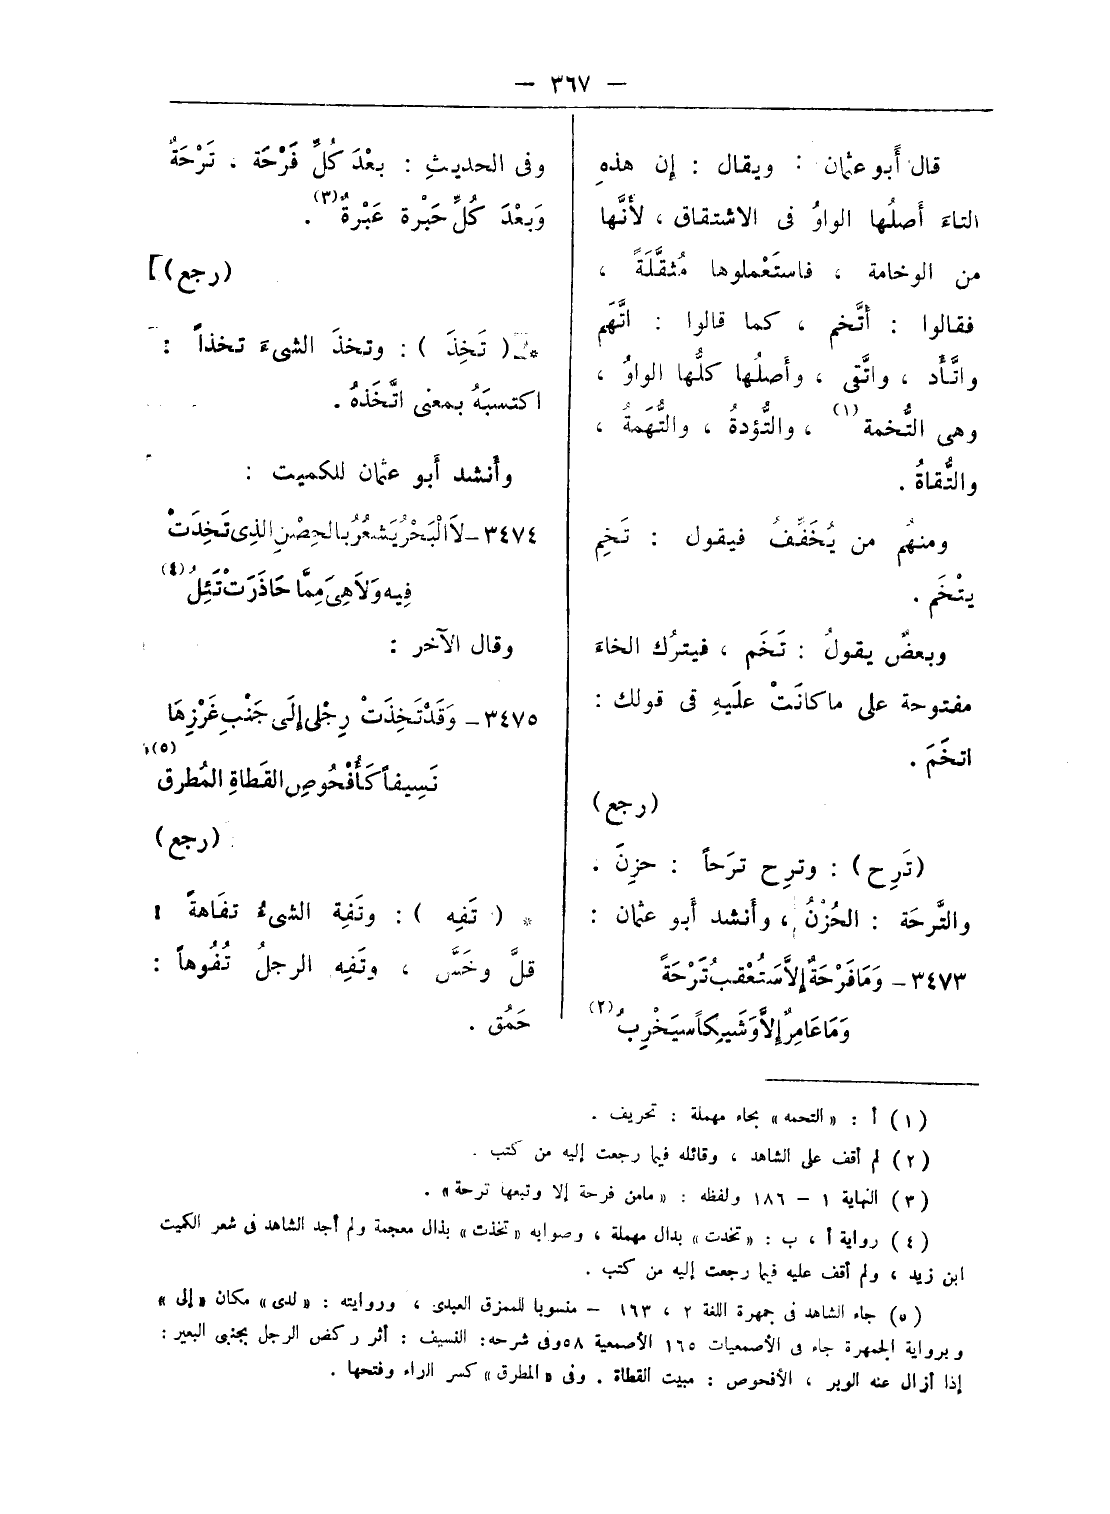 — ٣٦٧ —
قال أَبو عثمان : ويقال : إِن هذهِ
التاءَ أَصلُها الواوُ فى الاشتقاق ، لأَنَّها
من الوخامة ، فاستَعْملوها مُثقَّلَةً ،
فقالوا : أَتَّخم ، كما قالوا : اتَّهَم
واتَّأَد ، واتَّقى ، وأَصلُها كلُّها الواوُ ،
وهى التُّخمة (١) ، والتُّؤدةُ ، والتُّهَمةُ ،
والتُّقاةُ .
ومنهُم من يُخَفِّفُ فيقول : تَخِم
يتْخَم .
وبعضٌ يقولُ : تَخَم ، فيترُك الخاءَ
مفتوحة على ماكانَتْ علَيهِ فى قولك :
اتخَمَ .
(رجع)
(تَرِح) : وترِح ترَحاً : حزِنَ .
والتَّرحَة : الحُزْنُ ، وأَنشد أَبو عثمان :
٣٤٧٣ – وَمَا فَرْحَةٌ إِلاَّ سَتُعْقِبُ تَرْحَةً
وَمَا عَامِرٌ إِلاَّ وَشَيِكاً سيَخْرِبُ (٢)
وفى الحديثِ : بعْدَ كُلِّ فَرْحَة ، تَرْحَةٌ
وَبعْدَ كُلِّ حَبْرة عَبْرةٌ (٣) .
(رجع)]
* ( تَخِذَ ) : وتخذَ الشىءَ تخذاً :
اكتسبَهُ بمعنى اتَّخَذهُ .
وأَنشد أَبو عثمان للكميت :
٣٤٧٤ – لاَ الْبَحْرُ يَشعُرُ بالحِصْنِ الذِى تَخِذَتْ
فِيه وَلاَ هِىَ مِمَّا حَاذَرَتْ تَئِلُ (٤)
وقال الآخر :
٣٤٧٥ – وَقَدْ تَخِذَتْ رِجْلى إِلَى جَنْبِ غَرْزِهَا
نَسِيفاً كَأُفْحُوصِ القَطاةِ المُطرق (٥)
(رجع)
* ( تَفِه ) : وتَفِهَ الشىءُ تفَاهةً :
قلَّ وخَسَّ ، وتَفِه الرجلُ تُفُوهاً :
حَمُق .
(١) أ : « التحمه » بحاء مهملة : تحريف .
(٢) لم أقف على الشاهد ، وقائله فيما رجعت إليه من كتب .
(٣) النهاية ١ – ١٨٦ ولفظه : « مامن فرحة إلا وتبعها ترحة » .
(٤) رواية أ ، ب : « تخدت » بدال مهملة ، وصوابه « تخذت » بذال معجمة ولم أجد الشاهد فى شعر الكميت
ابن زيد ، ولم أقف عليه فيما رجعت إليه من كتب .
(٥) جاء الشاهد فى جمهرة اللغة ٢ ، ١٦٣ – منسوبا للممزق العبدى ، وروايته : « لدى » مكان « إلى »
وبرواية الجمهرة جاء فى الأصمعيات ١٦٥ الأصمعية ٥٨ وفى شرحه : النسيف : أثر ركض الرجل بجنبى البعير :
إذا أزال عنه الوبر ، الأفحوص : مبيت القطاة . وفى « المطرق » كسر الراء وفتحها .